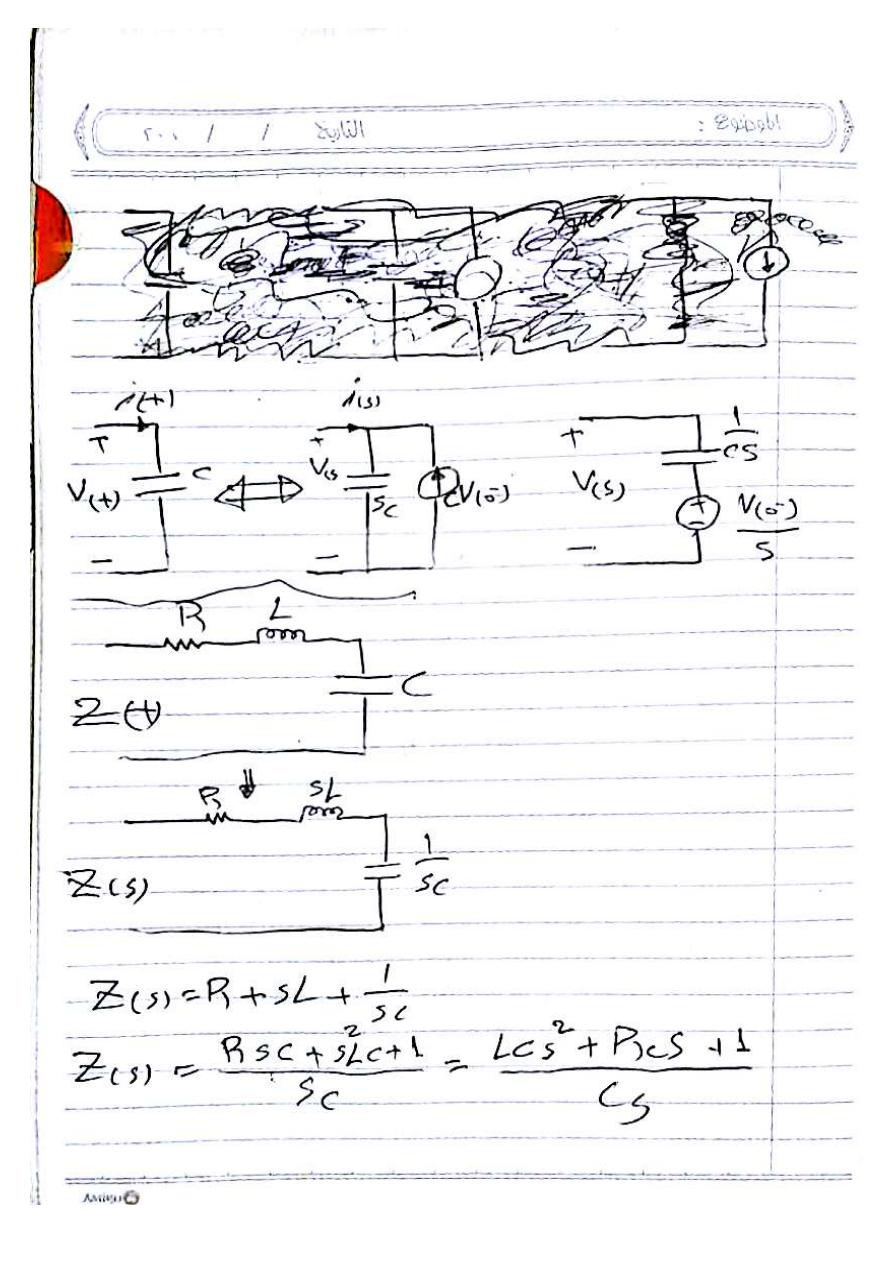 الموضوع :
التاريخ / / ٢٠٠
i(t)
+
V(t)
-
C
i(s)
+
V(s
-
sc
CV(0⁻)
+
V(s)
-
1/CS
+
-
V(0⁻)/S
R L
C
Z(t)
⇓
R sL
1/sc
Z(s)
Z(s) = R + sL + 1/sc
Z(s) = (Rsc + s²Lc + 1)/sc = (Lcs² + Rcs + 1)/Cs